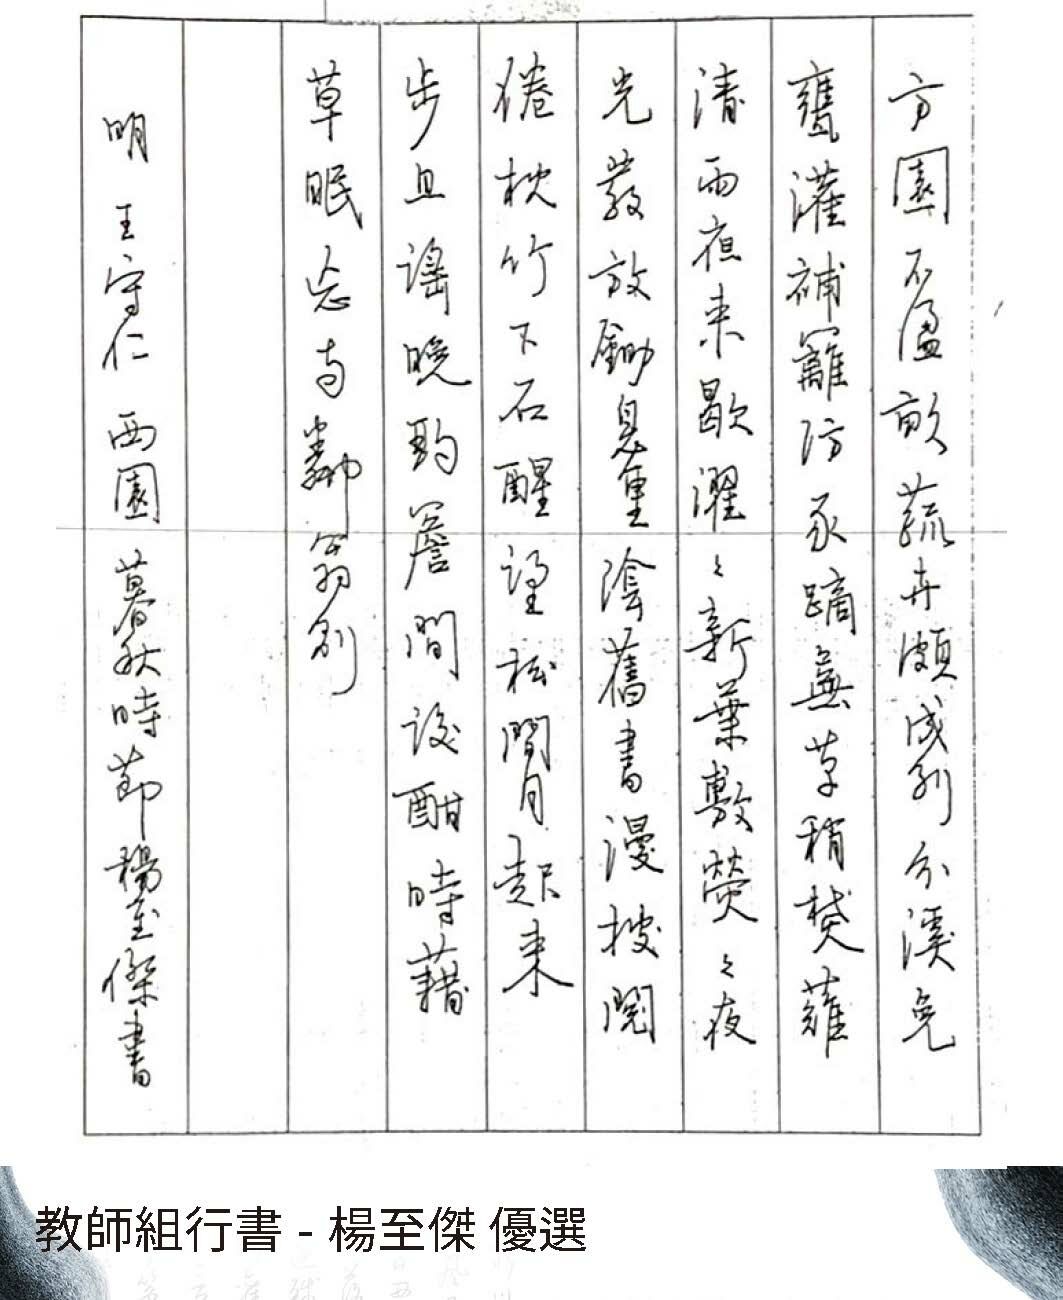 方園不盈畝蔬卉頗成列分溪免
甕灌補籬防豕蹢蕪草稍焚薙
清雨夜來歇濯々新葉敷熒々夜
光發放鋤息重陰舊書漫披閱
倦枕竹下石醒望松間月起來
步且謠晚酌簷間設酣時藉
草眠忘與鄰翁別
明 王守仁 西園 暮秋時節 楊至傑書
教師組行書 - 楊至傑 優選